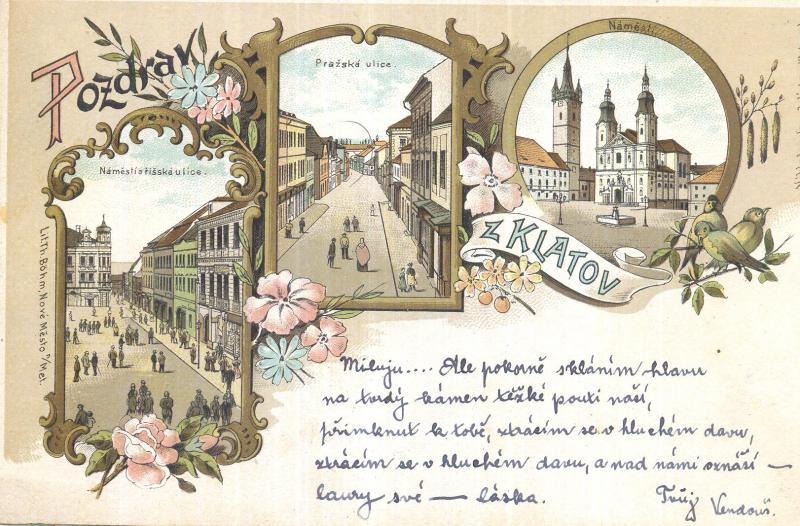 Pozdrav
Z KLATOV
Náměstí a říšská ulice.
Pražská ulice.
Náměstí
Lith. Böhm, Nové Město n/Met.
Miluju.... Ale pokorně skláním hlavu
na tvrdý kámen těžké pouti naší,
přimknut k tobě, ztrácím se v hluchém davu,
ztrácím se v hluchém davu, a nad námi vznáší —
lavry své — láska. Tvůj
Vendouš.